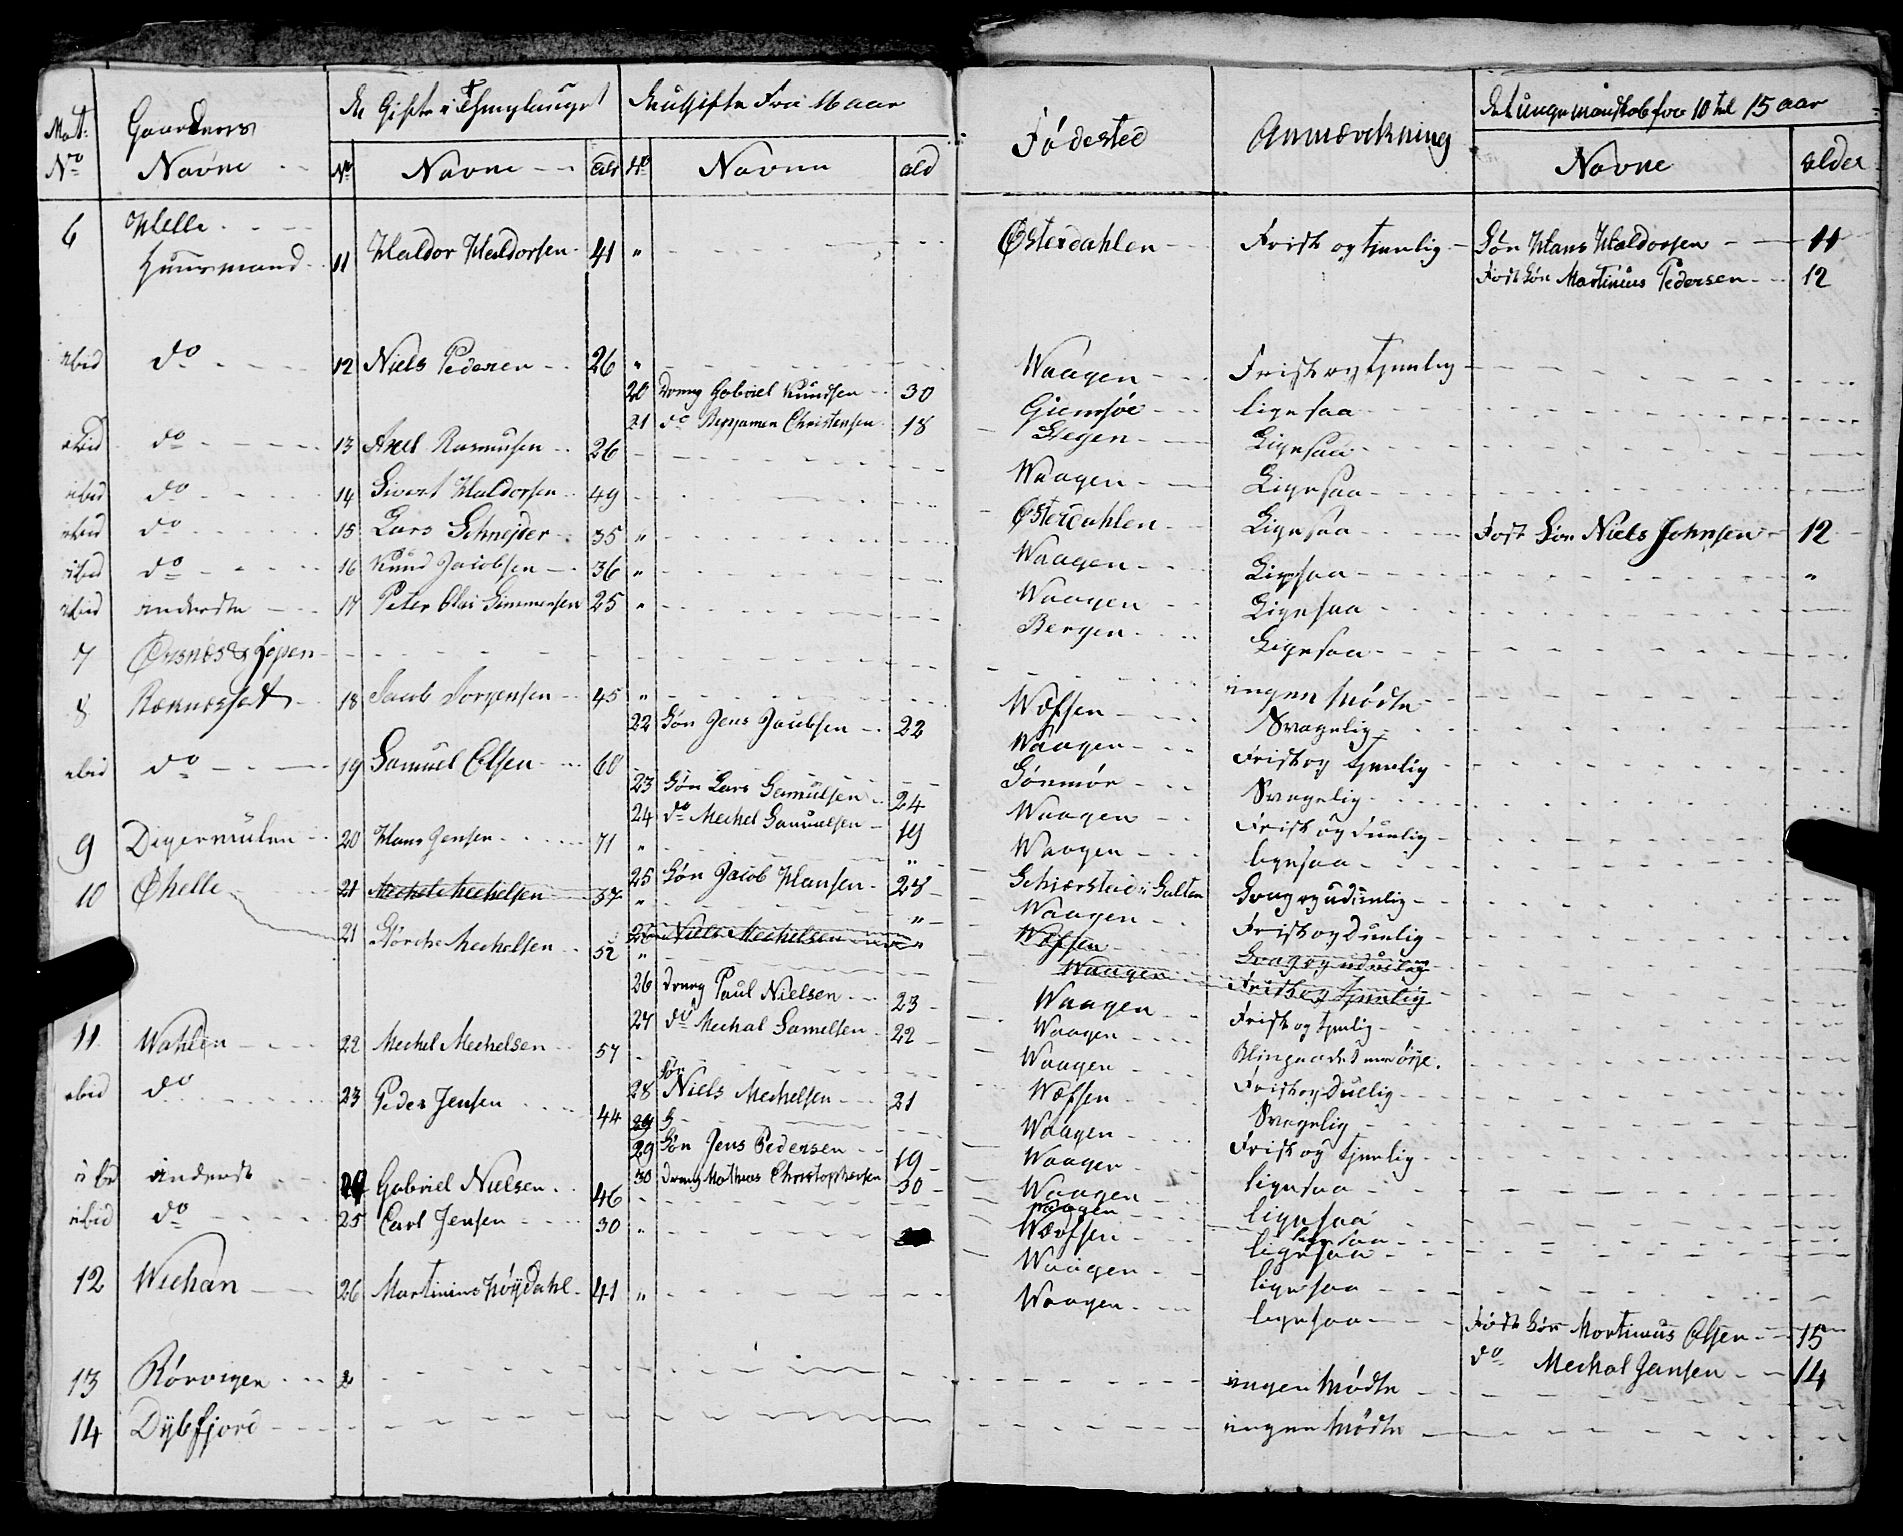 Mat: Gaardens De Gifte i De ugifte Fra 16 aar Fødested Anmærckning det unge mandskab fra 10 til 15 aar
No Navne No Navne Ald No Navne ald Navne alder
6 Helle
Huusmand 11 Haldor Haldorsen 41 " Østerdahlen Frisk og tjenlig Søn Hans Haldorsen 11
Fost Søn Martinius Pedersen 12
ibid do 12 Niels Pedersen 26 " Waagen Frisk og tjenlig
20 Dreng Gabriel Knudsen 30 Giemsøe ligesaa
21 do Benjamen Christensen 18 Stegen Ligesaa
ibid do 13 Axel Rasmusen 26 Waagen Ligesaa
ibid do 14 Sivert Haldorsen 49 Østerdahlen Ligesaa Fost Søn Niels Johnsen 12
ibid do 15 Lars Schnejder 35 " Waagen Ligesaa "
ibid do 16 Knud Jacobsen 36 " Waagen Ligesaa
ibid inderste 17 Peter Olai Simmensen 25 " Bergen Ligesaa
7 Ørsnes & Løpen ingen Mødte
8 Reknesset 18 Jacob Jorgensen 45 " Wæfsen Svagelig
22 Søn Jens Jacobsen 22 Waagen Frisk og tjenlig
ibid do 19 Samuel Olsen 60 Sønmør Svagelig
23 Søn Lars Samulsen 24 Waagen Frisk og Duelig
24 do Mechel Samuelsen 19 Waagen ligesaa
9 Digermulen 20 Hans Jensen 71 " " Schierstad i Salten Svag og uduelig
25 Søn Jacob Hansen 28 Waagen Frisk og Duelig
10 Øhelle 21 Mechel Mechelsen 57 " " Wæfsen Svag og uduelig
26 Niels Mechelsen " Waagen Frisk og tjenlig
21 Störche Mechelsen 52 " Waagen Frisk og tjenlig
26 Dreng Paul Nielsen 23 Waagen
27 do Mechal Samelsen 22 Waagen Frisk og Duelig
11 Wahlen 22 Mechel Mechelsen 57 Wæfsen Svagelig
28 Søn Niels Mechelsen 21 Waagen Frisk og tjenlig
ibid do 23 Peder Jensen 44 29 Waagen ligesaa
29 Søn Jens Pedersen 19 Waagen ligesaa
30 Dreng Mathias Christophersen 30 Waagen ligesaa
ibid inderst 24 Gabriel Nielsen 46 Wæfsen ligesaa
ibid do 25 Carl Jensen 30 " Waagen ligesaa
12 Wiehan 26 Martinius Høydahl 41 " Waagen ligesaa Fost Søn Mortinius Olsen 15
do Mechal Jansen 14
13 Rørvigen 2 ingen Mødte
14 Dybfjord ingen Mødte